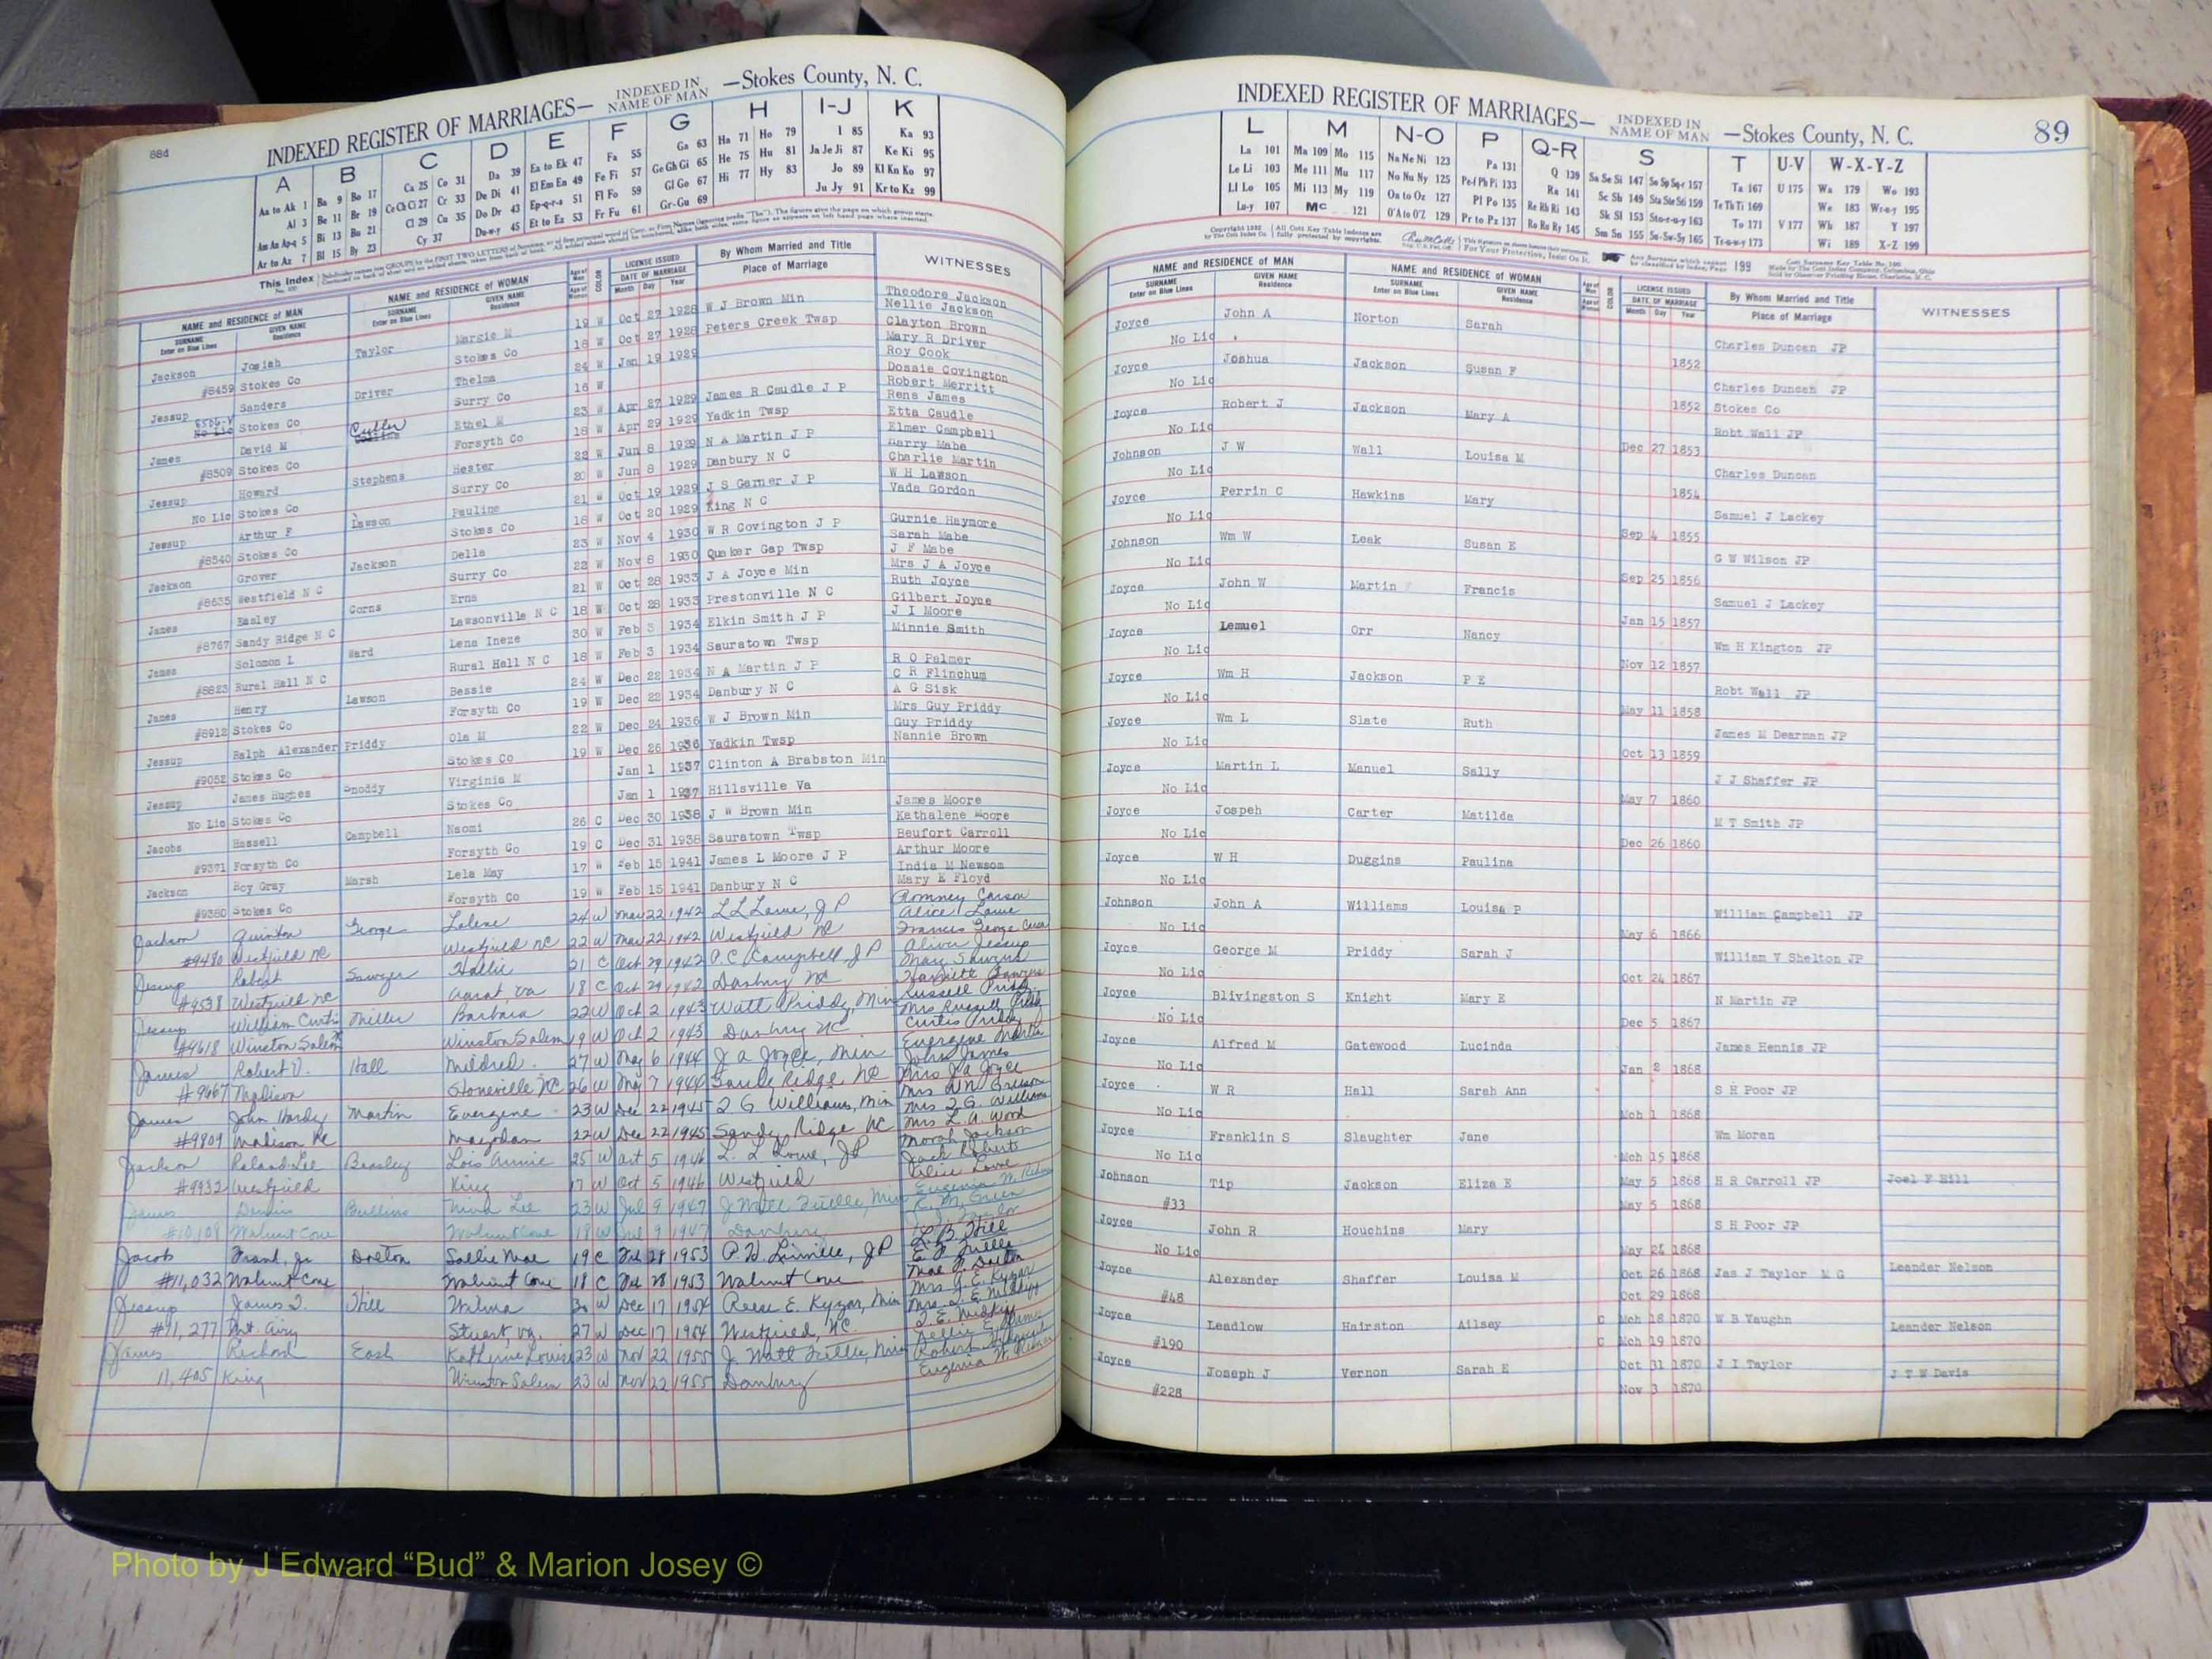 88d
INDEXED REGISTER OF MARRIAGES— INDEXED IN NAME OF MAN —Stokes County, N. C.
A B C D E F G H I-J K
Aa to Ak 1 Ba 9 Bo 17 Ca 25 Co 31 Da 39 Ea to Ek 47 Fa 55 Ga 63 Ha 71 Ho 79 I 85 Ka 93
Al 3 Be 11 Br 19 Ce Ch Ci 27 Cr 33 De Di 41 El Em En 49 Fe Fi 57 Ge Gh Gi 65 He 75 Hu 81 Ja Je Ji 87 Ke Ki 95
Am An Ap-q 5 Bi 13 Bu 21 Cl 29 Cu 35 Do Dr 43 Ep-q-r-s 51 Fl Fo 59 Gl Go 67 Hi 77 Hy 83 Jo 89 Kl Kn Ko 97
Ar to Az 7 Bl 15 By 23 Cy 37 Du-w-y 45 Et to Ez 53 Fr Fu 61 Gr-Gu 69 Ju Jy 91 Kr to Kz 99
This Index
NAME and RESIDENCE of MAN NAME and RESIDENCE of WOMAN LICENSE ISSUED By Whom Married and Title WITNESSES
SURNAME GIVEN NAME SURNAME GIVEN NAME DATE OF MARRIAGE Place of Marriage
Enter on Blue Lines Residence Enter on Blue Lines Residence Month Day Year
Jackson Josiah Taylor Margie M 19 W Oct 27 1928 W J Brown Min Theodore Jackson
Nellie Jackson
#8459 Stokes Co Stokes Co 18 W Oct 27 1928 Peters Creek Twsp Clayton Brown
Jessup Sanders Driver Thelma 24 W Jan 19 1929 Mary R Driver
Roy Cook
No Lic Stokes Co Surry Co 16 W Dossie Covington
James David M Cutler Ethel M 23 W Apr 27 1929 James R Caudle J P Robert Merritt
Rena James
#8509 Stokes Co Forsyth Co 18 W Apr 29 1929 Yadkin Twsp Etta Caudle
Jessup Howard Stephens Hester 22 W Jun 8 1929 N A Martin J P Elmer Campbell
Harry Mabe
No Lic Stokes Co Surry Co 20 W Jun 8 1929 Danbury N C Charlie Martin
Jessup Arthur F Lawson Pauline 21 W Oct 19 1929 J S Garner J P W H Lawson
#8540 Stokes Co Stokes Co 16 W Oct 20 1929 King N C Vada Gordon
Jackson Grover Jackson Della 23 W Nov 4 1930 W R Covington J P Gurnie Haymore
Sarah Mabe
#8635 Westfield N C Surry Co 22 W Nov 8 1930 Quaker Gap Twsp J F Mabe
James Easley Corns Erna 21 W Oct 28 1933 J A Joyce Min Mrs J A Joyce
Ruth Joyce
#8767 Sandy Ridge N C Lawsonville N C 18 W Oct 28 1933 Prestonville N C Gilbert Joyce
James Solomon L Ward Lena Ineze 30 W Feb 3 1934 Elkin Smith J P J I Moore
#8823 Rural Hall N C Rural Hall N C 18 W Feb 3 1934 Sauratown Twsp Minnie Smith
James Henry Lawson Bessie 24 W Dec 22 1934 N A Martin J P R O Palmer
C R Flinchum
#8912 Stokes Co Forsyth Co 19 W Dec 22 1934 Danbury N C A G Sisk
Jessup Ralph Alexander Priddy Ola M 22 W Dec 24 1936 W J Brown Min Mrs Guy Priddy
Guy Priddy
#9052 Stokes Co Stokes Co 19 W Dec 26 1936 Yadkin Twsp Nannie Brown
Jessup James Hughes Snoddy Virginia M Jan 1 1937 Clinton A Brabston Min
No Lic Stokes Co Stokes Co Jan 1 1937 Hillsville Va
Jacobs Hassell Campbell Naomi 26 C Dec 30 1938 J W Brown Min James Moore
Kathalene Moore
#9371 Forsyth Co Forsyth Co 19 C Dec 31 1938 Sauratown Twsp Beufort Carroll
Jackson Roy Gray Marsh Lela May 17 W Feb 15 1941 James L Moore J P Arthur Moore
India M Newsom
#9380 Stokes Co Forsyth Co 19 W Feb 15 1941 Danbury N C Mary E Floyd
Jackson Quinton George Lalene 24 W Mar 22 1942 L L Lowe, J P Romney Carson
Alice Lowe
#9480 Westfield NC Westfield NC 22 W Mar 22 1942 Westfield NC Frances George
Jessup Robert Sawyer Hallie 21 C Oct 29 1942 P. C. Campbell, J P
#9538 Westfield NC Ararat, Va 18 C Oct 29 1942 Danbury NC
Jessup William Curtis Miller Barbara 22 W Oct 2 1943 Watt Priddy, Min Russell Priddy
Mrs Russell Priddy
#9618 Winston Salem Winston Salem 19 W Oct 2 1943 Danbury NC Curtis Priddy
James Robert D. Hall Mildred 27 W May 6 1944 J A Joyce, Min Evergene Martin
John James
#9667 Madison Stoneville NC 26 W May 7 1944 Sandy Ridge NC Mrs J A Joyce
James John Hardy Martin Evergene 23 W Dec 22 1945 T G Williams, Min
Mrs T. G. Williams
#9809 Madison NC Mayodan 22 W Dec 22 1945 Sandy Ridge NC Mrs L. A. Wood
Jackson Roland Lee Beasley Lois Annie 25 W Oct 5 1946 L. L Lowe, JP
Jack Roberts
#9932 Westfield King 17 W Oct 5 1946 Westfield Alice Lowe
James Dennis Bullins Nina Lee 23 W Jul 9 1947 J Watt Tuttle, Min
#10,109 Walnut Cove Walnut Cove 18 W Jul 9 1947 Danbury
Jacob Frank, Jr Dalton Sallie Mae 19 C Jul 28 1953 P. W. Linville, JP L. B. Hill
E. P. Tuttle
#11,032 Walnut Cove Walnut Cove 18 C Jul 28 1953 Walnut Cove Mae J. Dalton
Jessup James T. Hill Wilma 30 W Dec 17 1954 Reese E. Kyzar, Min Mrs R. E. Kyzar
#11,277 Mt. Airy Stuart, Va. 27 W Dec 17 1954 Westfield, NC.
James Richard East Katherine Louise 23 W Nov 22 1955 J. Watt Tuttle, Min
11,405 King Winston Salem 23 W Nov 22 1955 Danbury
INDEXED REGISTER OF MARRIAGES— INDEXED IN NAME OF MAN —Stokes County, N. C. 89
L M N-O P Q-R S T U-V W-X-Y-Z
La 101 Ma 109 Mo 115 Na Ne Ni 123 Pa 131 Q 139 Sa Se Si 147 So Sp Sq-r 157 Ta 167 U 175 Wa 179 Wo 193
Le Li 103 Me 111 Mu 117 No Nu Ny 125 Pe-f Ph Pi 133 Ra 141 Sc Sh 149 Sta Ste Sti 159 Te Th Ti 169 We 183 Wr-u-y 195
Ll Lo 105 Mi 113 My 119 Oa to Oz 127 Pl Po 135 Re Rh Ri 143 Sk Sl 153 Sto-r-u-y 163 To 171 V 177 Wh 187 Y 197
Lu-y 107 Mc 121 O'A to O'Z 129 Pr to Pz 137 Ro Ru Ry 145 Sm Sn 155 Su-Sw-Sy 165 Tr-u-w-y 173 Wi 189 X-Z 199
NAME and RESIDENCE of MAN NAME and RESIDENCE of WOMAN LICENSE ISSUED By Whom Married and Title WITNESSES
SURNAME GIVEN NAME SURNAME GIVEN NAME DATE OF MARRIAGE Place of Marriage
Enter on Blue Lines Residence Enter on Blue Lines Residence Month Day Year
Joyce John A Norton Sarah Charles Duncan JP
No Lic 1852
Joyce Joshua Jackson Susan F Charles Duncan JP
No Lic 1852 Stokes Co
Joyce Robert J Jackson Mary A Robt Wall JP
No Lic Dec 27 1853
Johnson J W Wall Louisa M Charles Duncan
No Lic 1854
Joyce Perrin C Hawkins Mary Samuel J Lackey
No Lic Sep 4 1855
Johnson Wm W Leak Susan E G W Wilson JP
No Lic Sep 25 1856
Joyce John W Martin Francis Samuel J Lackey
No Lic Jan 15 1857
Joyce Lemuel Orr Nancy Wm H Kington JP
No Lic Nov 12 1857
Joyce Wm H Jackson P E Robt Wall JP
No Lic May 11 1858
Joyce Wm L Slate Ruth James M Dearman JP
No Lic Oct 13 1859
Joyce Martin L Manuel Sally J J Shaffer JP
No Lic May 7 1860
Joyce Jospeh Carter Matilda M T Smith JP
No Lic Dec 26 1860
Joyce W H Duggins Paulina
No Lic
Johnson John A Williams Louisa P William Campbell JP
No Lic May 6 1866
Joyce George M Priddy Sarah J William V Shelton JP
No Lic Oct 24 1867
Joyce Blivingston S Knight Mary E N Martin JP
No Lic Dec 5 1867
Joyce Alfred M Gatewood Lucinda James Hennis JP
No Lic Jan 2 1868
Joyce W R Hall Sarah Ann S H Poor JP
No Lic Mch 1 1868
Joyce Franklin S Slaughter Jane Wm Moran
No Lic Mch 15 1868
Johnson Tip Jackson Eliza E May 5 1868 H R Carroll JP Joel F Hill
#33 May 5 1868
Joyce John R Houchins Mary S H Poor JP
No Lic May 21 1868
Joyce Alexander Shaffer Louisa M Oct 26 1868 Jas J Taylor M G Leander Nelson
#48 Oct 29 1868
Joyce Leadlow Hairston Ailsey C Mch 18 1870 W B Vaughn Leander Nelson
#190 C Mch 19 1870
Joyce Joseph J Vernon Sarah E Oct 31 1870 J I Taylor J T W Davis
#228 Nov 3 1870
Photo by J Edward “Bud” & Marion Josey ©